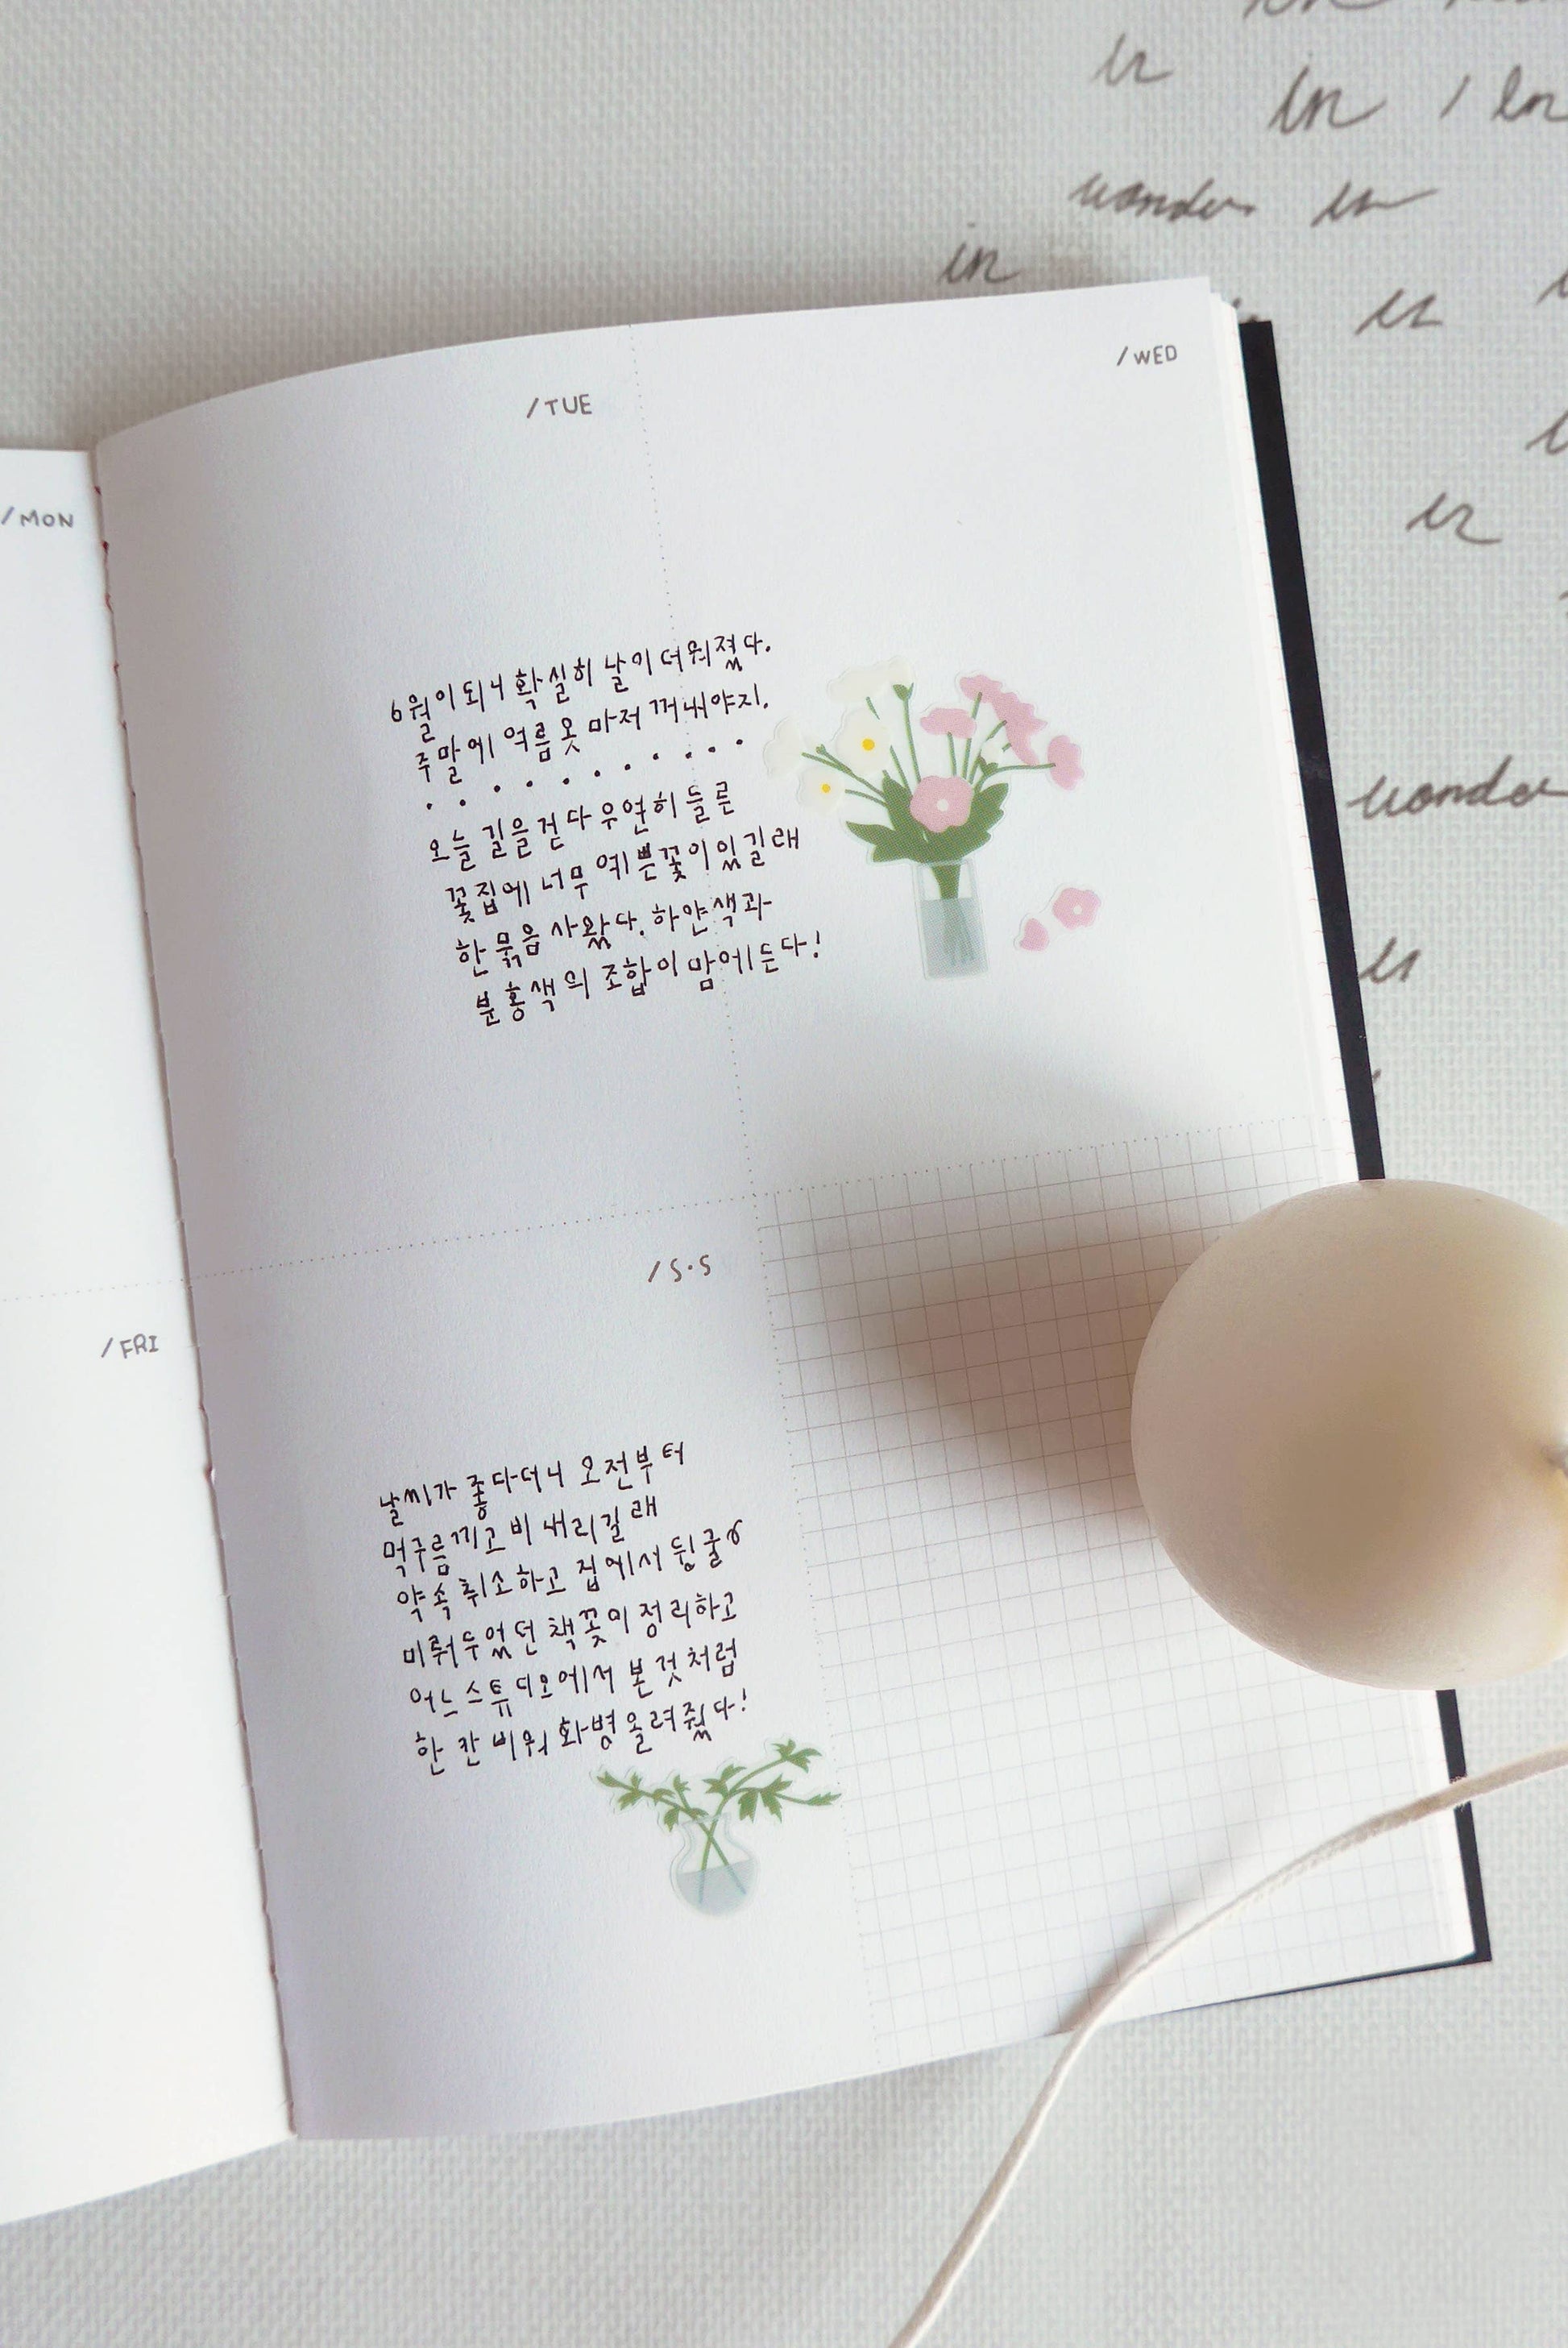 in
/ in
wonder in
in
/WED
/TUE
/MON
6월이 되니 확실히 날이 더워졌다.
주말에 여름옷 마저 꺼내야지.
. . . . . . . . . .
오늘 길을 걷다 우연히 들른
꽃집에 너무 예쁜꽃이 있길래
한 묶음 사왔다. 하얀색과
분홍색의 조합이 맘에든다!
wonder
/S·S
/FRI
날씨가 좋다더니 오전부터
먹구름끼고 비 내리길래
약속 취소하고 집에서 뒹굴
미뤄두었던 책꽂이 정리하고
어느 스튜디오에서 본 것처럼
한 칸 비워 화병 올려줬다!